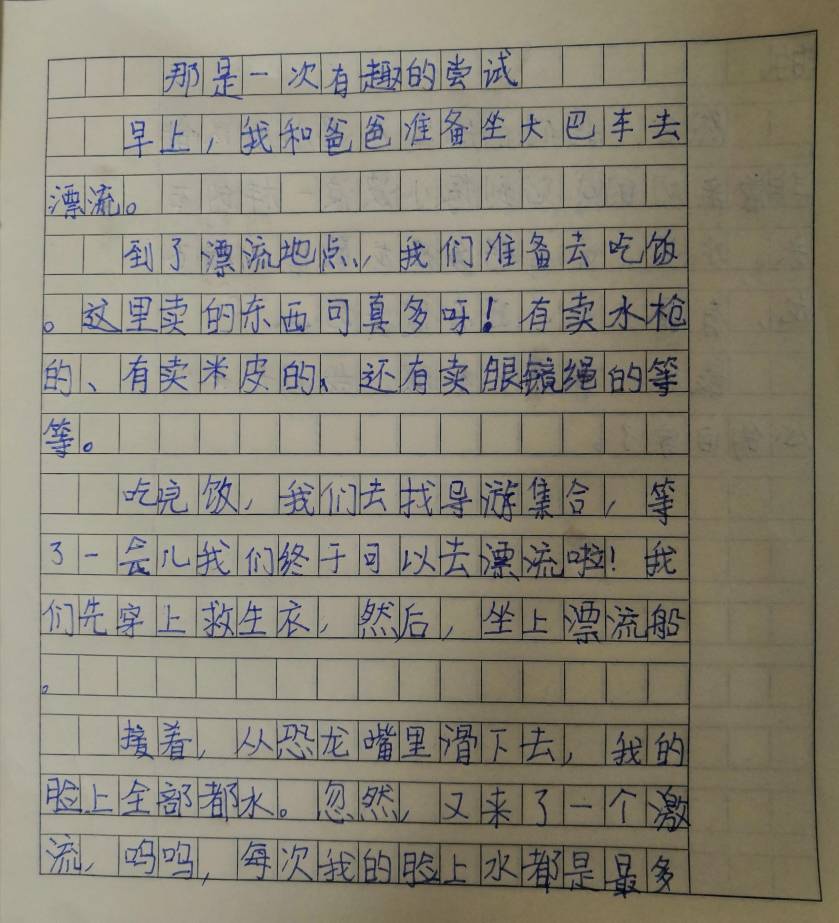 那是一次有趣的尝试
早上，我和爸爸准备坐大巴车去
漂流。
到了漂流地点，我们准备去吃饭
。这里卖的东西可真多呀！有卖水枪
的、有卖米皮的、还有卖眼镜绳的等
等。
吃完饭，我们去找导游集合，等
了一会儿我们终于可以去漂流啦！我
们先穿上救生衣，然后，坐上漂流船
。
接着，从恐龙嘴里滑下去，我的
脸上全部都水。忽然，又来了一个激
流，呜呜，每次我的脸上水都是最多